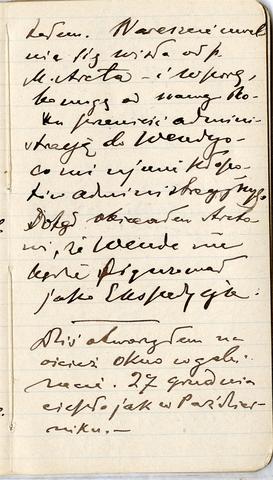 kałem. Nareszcie uwol-
nia się wizda od p.
M. Arcta - i w porę,
bo mogę od nowego Ro-
ku przenieść admini-
strację do Wendego,
co mi ujmie kłopo-
tów administracyjnych.
Dotąd obiecałem Arcto-
wi, że Wende nie
będzie figurował
jako Ekspedycja.
Dziś otworzyłem na
oścież okno w gabi-
necie. 27 grudnia
ciepło jak w Paździer-
niku. -